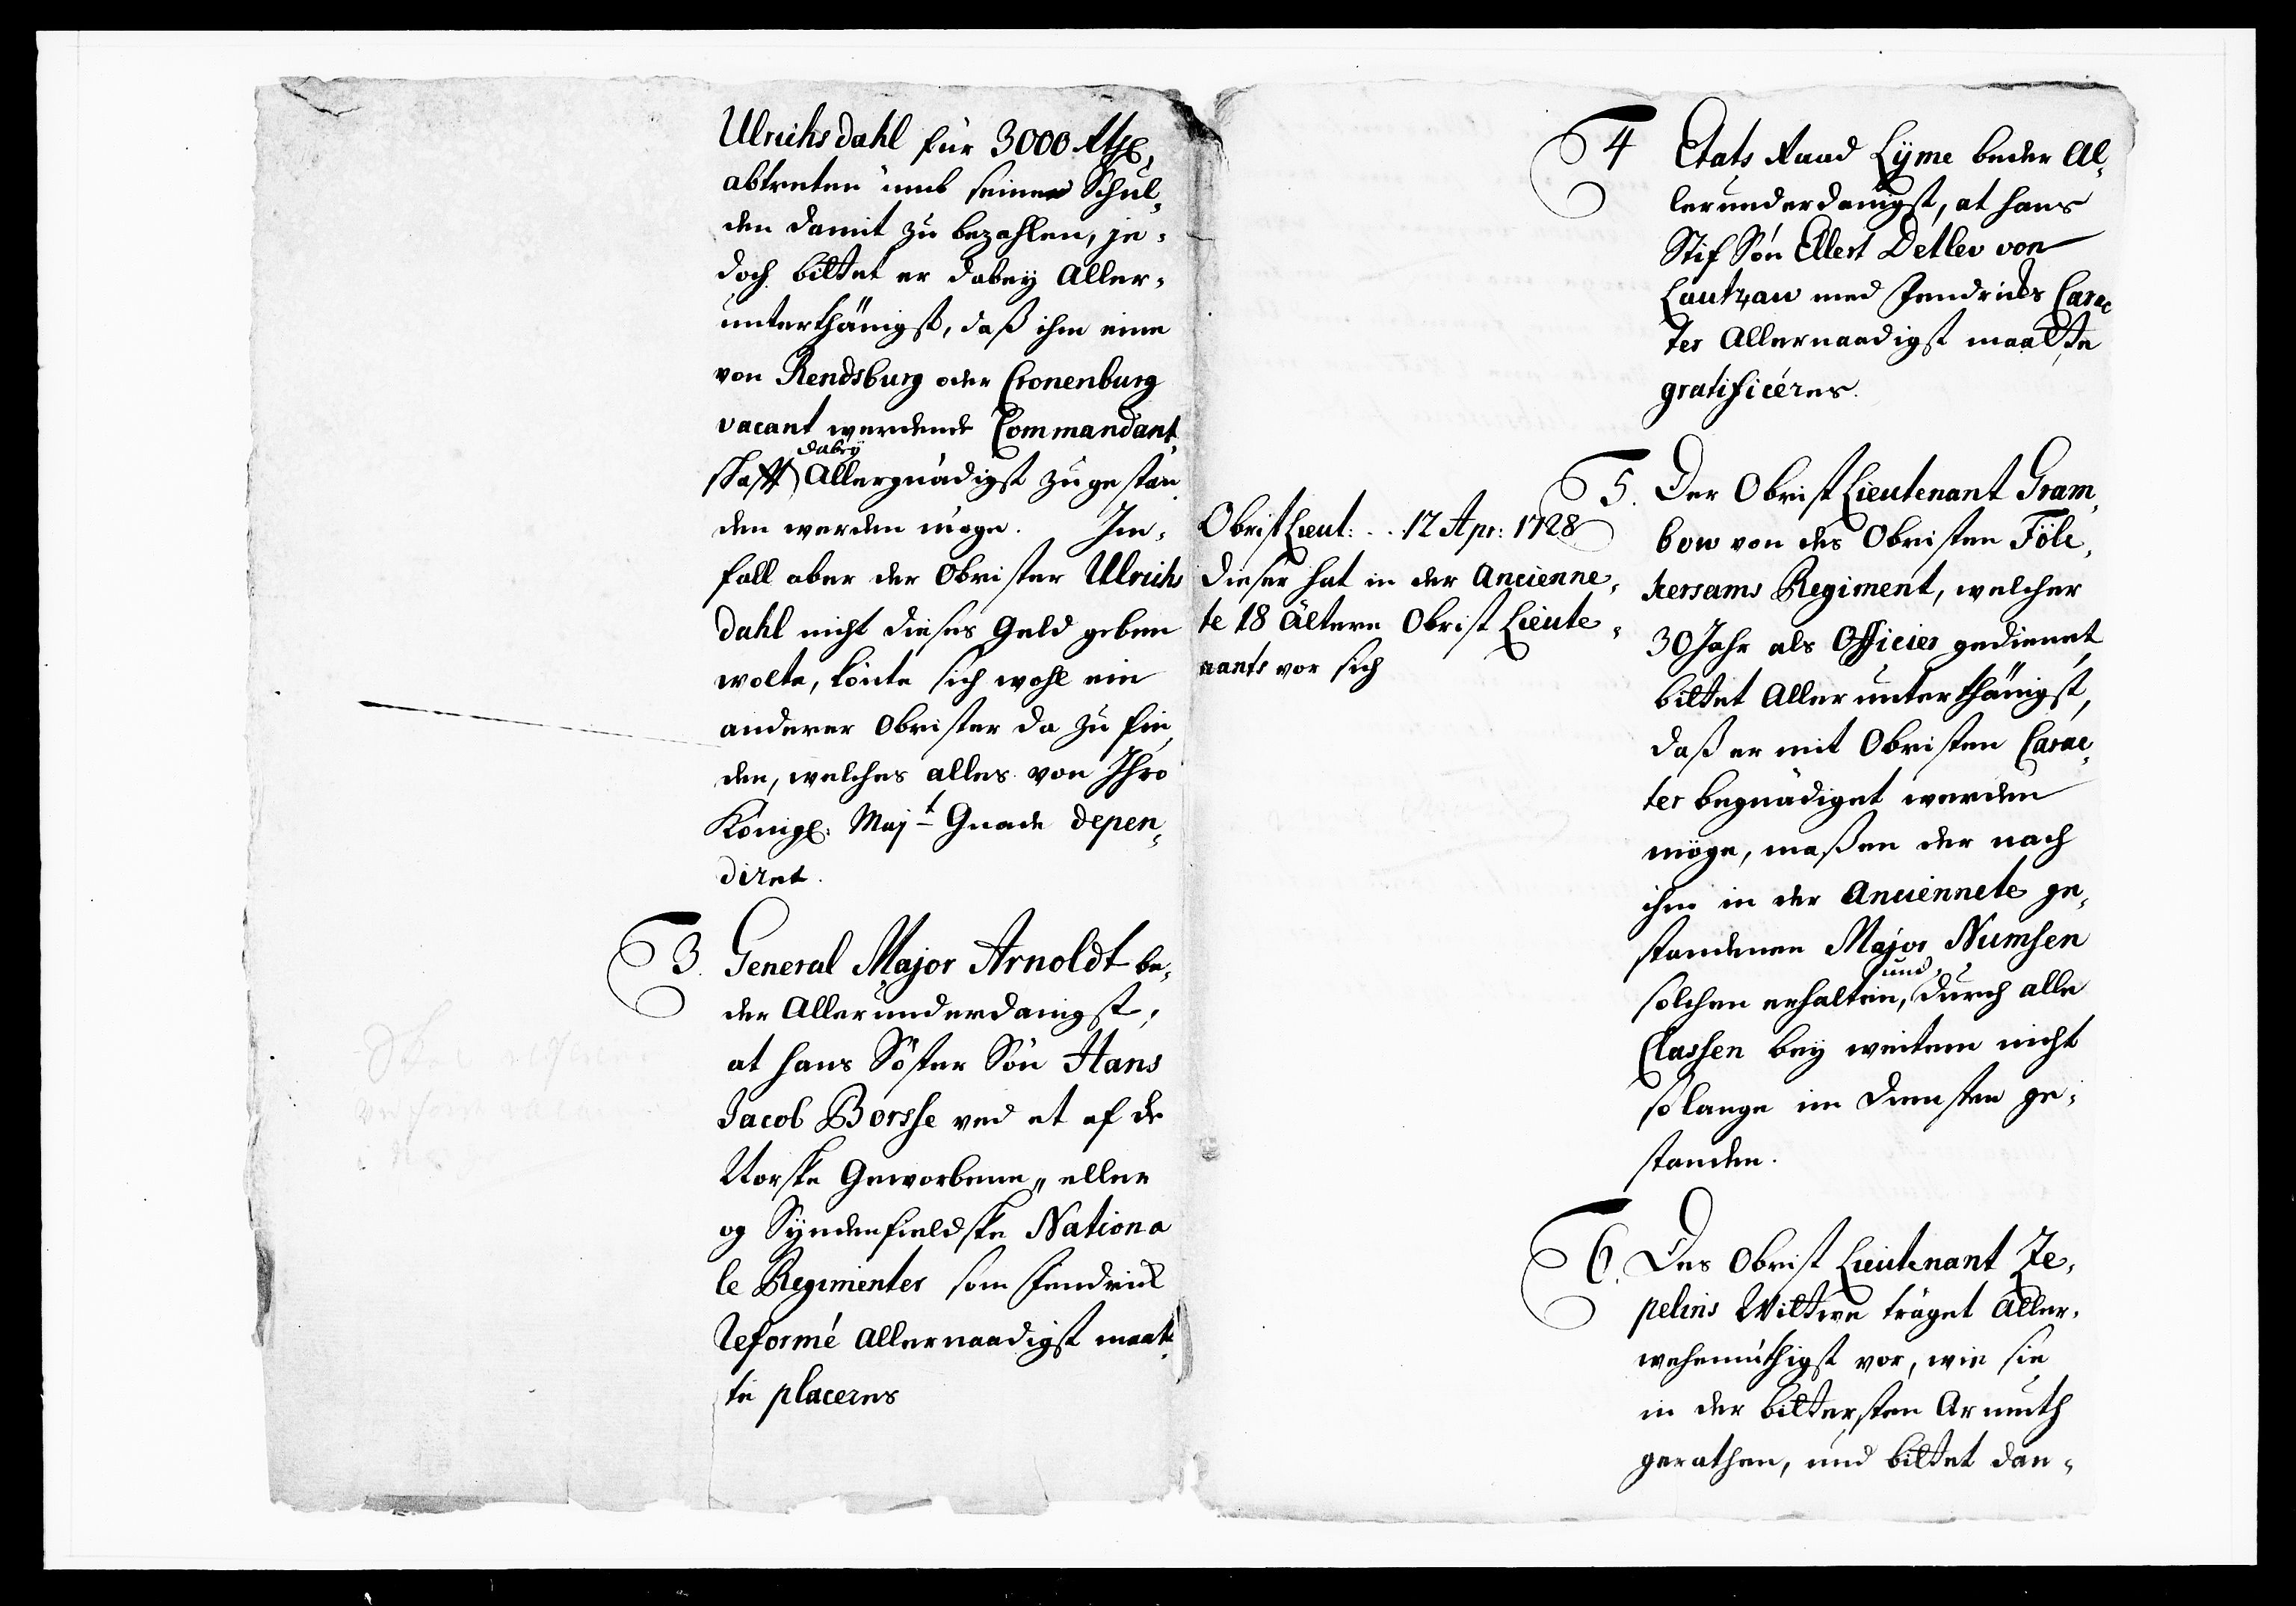 Ulrichsdahl für 3000 Rthl,
abtreten umb seine Schul¬
den damit zu bezahlen, je¬
doch bittet er dabey Aller¬
unterthänigst, daß ihm eine
von Rendsburg oder Cronenburg
vacant werdende Commandant¬
dabey
schafft Allergnädigst zugestan¬
den werden möge. Im¬
fall aber der Obrister Ulrichs
dahl nicht dieses Geld geben
wolte, könte sich wohl ein
anderer Obrister dazu fin¬
den, welches alles von Ihro
Königl: Majt Gnade depen¬
diret.
3. General Major Arnoldt be¬
der Allerunderdanigst,
at hans Söster Sön Hans
Jacob Borsse ved et af de
Norske Geworbene,, eller
og Syndenfieldske Nationa
le Regimenter som Fendrick
Reformé Allernaadigst maat¬
te placeres
4 Etats Raad Lyme beder Al¬
lerunderdanigst, at hans
Stif Sön Ellert Detlev von
Lautzau med Fendricks Carac
ter Allernaadigst maatte
gratificéres.
Obrist Lieut: .. 12 Apr: 1728
Dieser hat in der Ancienne¬
te 18 Ältere Obrist Lieute¬
nants vor sich
5. Der Obrist Lieutenant Gram¬
bow von des Obristen Föle
kersams Regiment, welcher
30 Jahr als Officier gedienet
bittet Allerunterthänigst,
daß er mit Obristen Carac¬
ter begnädiget werden
möge, maßen der nach
ihm in der Anciennete ge¬
standenen Major Numsen
und
solchen erhalten, durch alle
Classen bey weitem nicht
so lange im Diensten ge¬
standen.
6. Des Obrist Lieutenant Ze¬
pelins Wittwe träget Aller¬
wehemüthigst vor, wie sie
in der bittersten Armuth
gerathen, und bittet dan¬